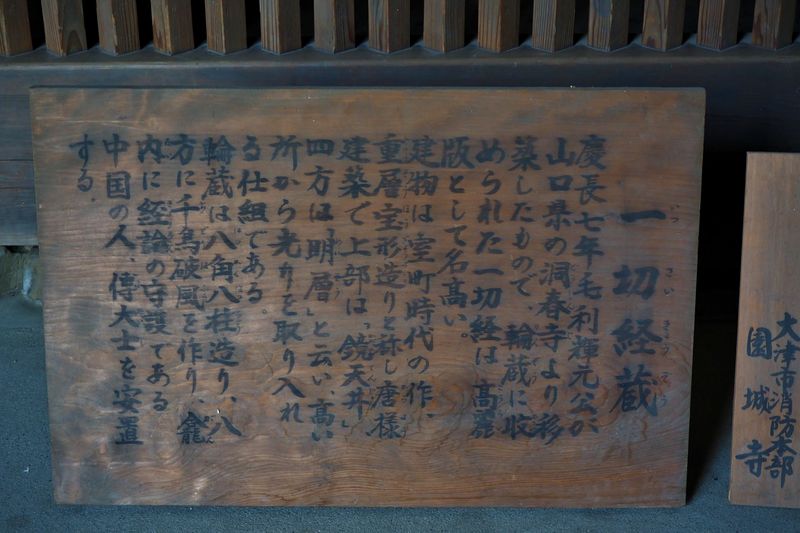 一切経蔵
慶長七年毛利輝元公が
山口県の洞春寺より移
築したもので、輪蔵に収
められた一切経は高麗
版として名高い。
建物は室町時代の作、
重層宝形造りと称し唐様
建築で上部は「鏡天井」
四方は「明層」と云い、高い
所から光りを取り入れ
る仕組である。
輪蔵は八角八柱造り、八
方に千鳥破風を作り、龕
内に経論の守護である
中国の人、傅大士を安置
する.
大津市消防本部
園城寺